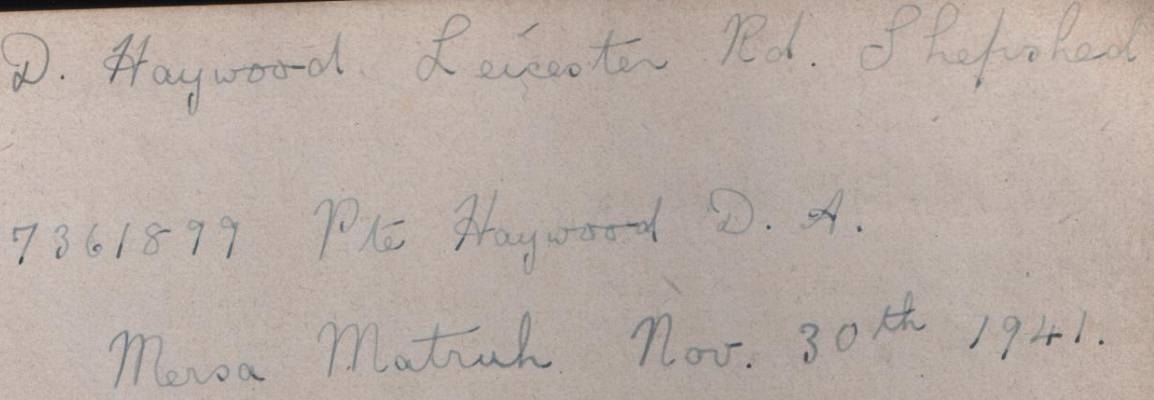 D. Haywood. Leicester Rd. Shepshed
7361899 Pte Haywood D. A.
Mersa Matruh Nov. 30th 1941.